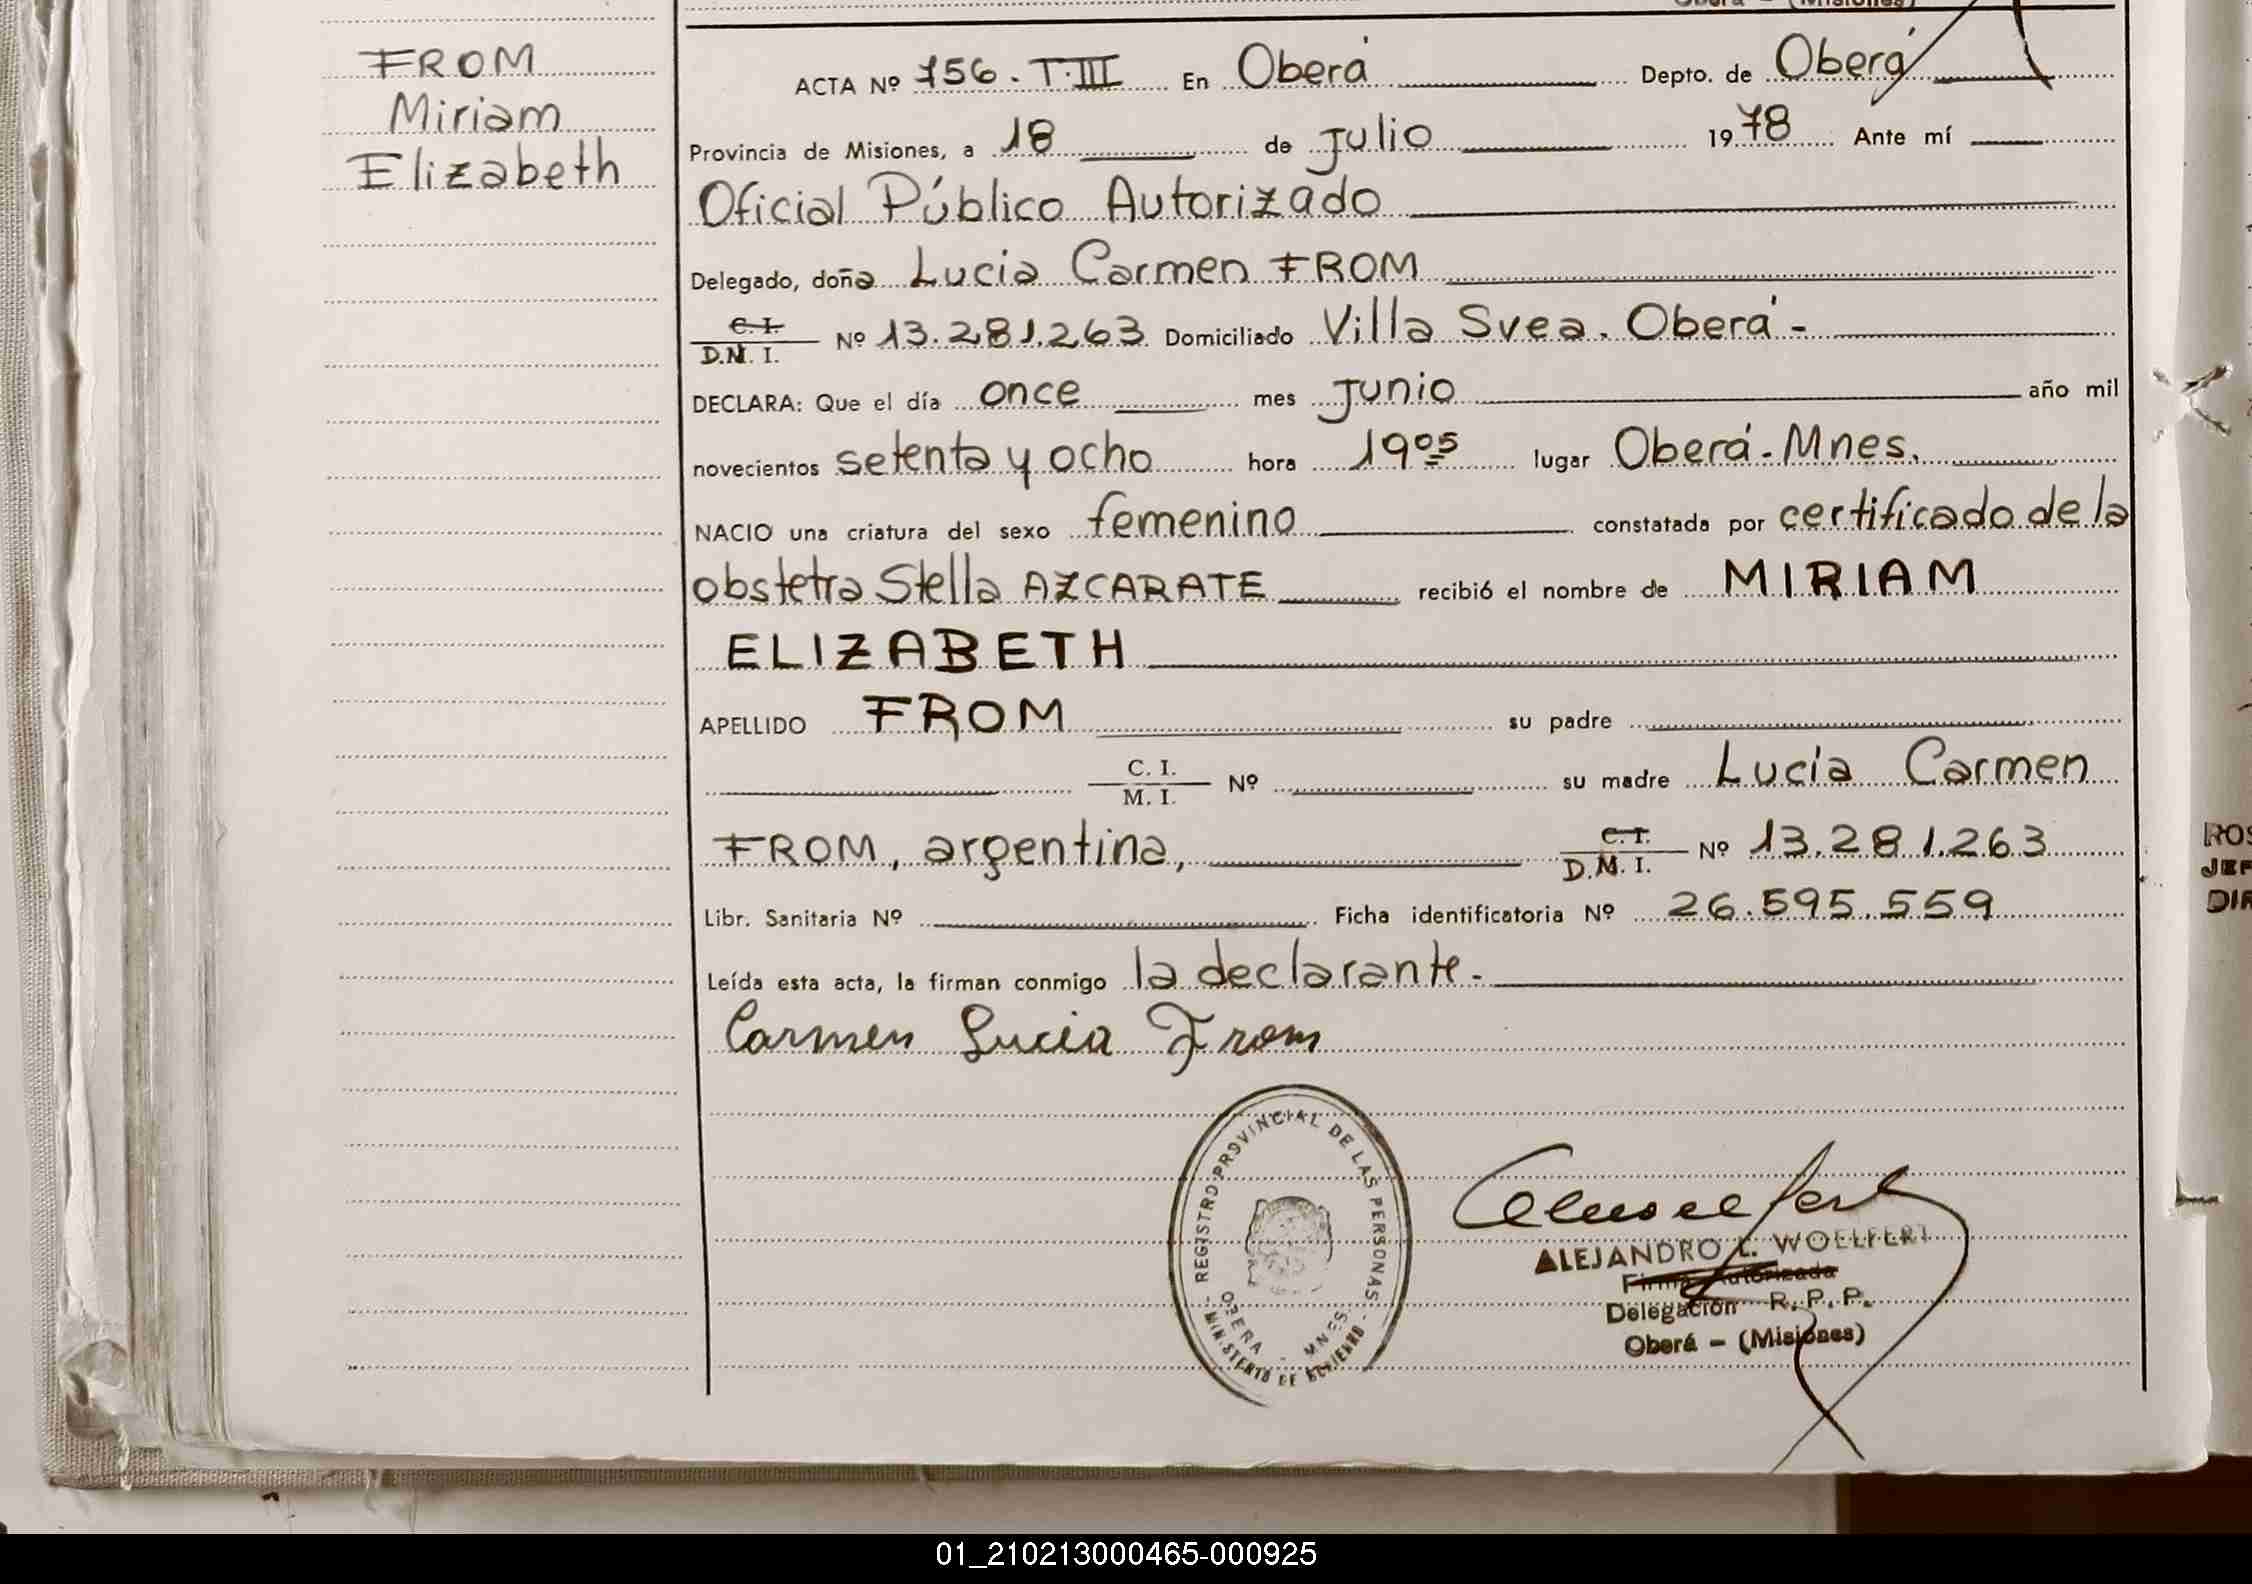 FROM
Miriam
Elizabeth
Oberá - (Misiones)
ACTA Nº 756. T.III En Oberá Depto. de Oberá
Provincia de Misiones, a 18 de Julio 1978 Ante mí
Oficial Público Autorizado
Delegado, doña Lucia Carmen FROM
C. I.
D.N. I. Nº 13.281.263 Domiciliado Villa Svea. Oberá.-
DECLARA: Que el día once mes Junio año mil
novecientos setenta y ocho hora 19 05 lugar Oberá-Mnes.
NACIO una criatura del sexo femenino constatada por certificado de la
obstetra Stella AZCARATE recibió el nombre de MIRIAM
ELIZABETH
APELLIDO FROM su padre
C. I.
M. I. Nº su madre Lucia Carmen
FROM, argentina, C. I.
D.N. I. Nº 13.281.263
Libr. Sanitaria Nº Ficha identificatoria Nº 26.595.559
Leída esta acta, la firman conmigo la declarante.-
Carmen Lucia From
REGISTRO PROVINCIAL DE LAS PERSONAS
OBERA - MNES.
MINISTERIO DE GOBIERNO
ALEJANDRO L. WOELFERT
Firma Autorizada
Delegación R. P. P.
Oberá - (Misiones)
ROS
JEF
DIR
01_210213000465-000925